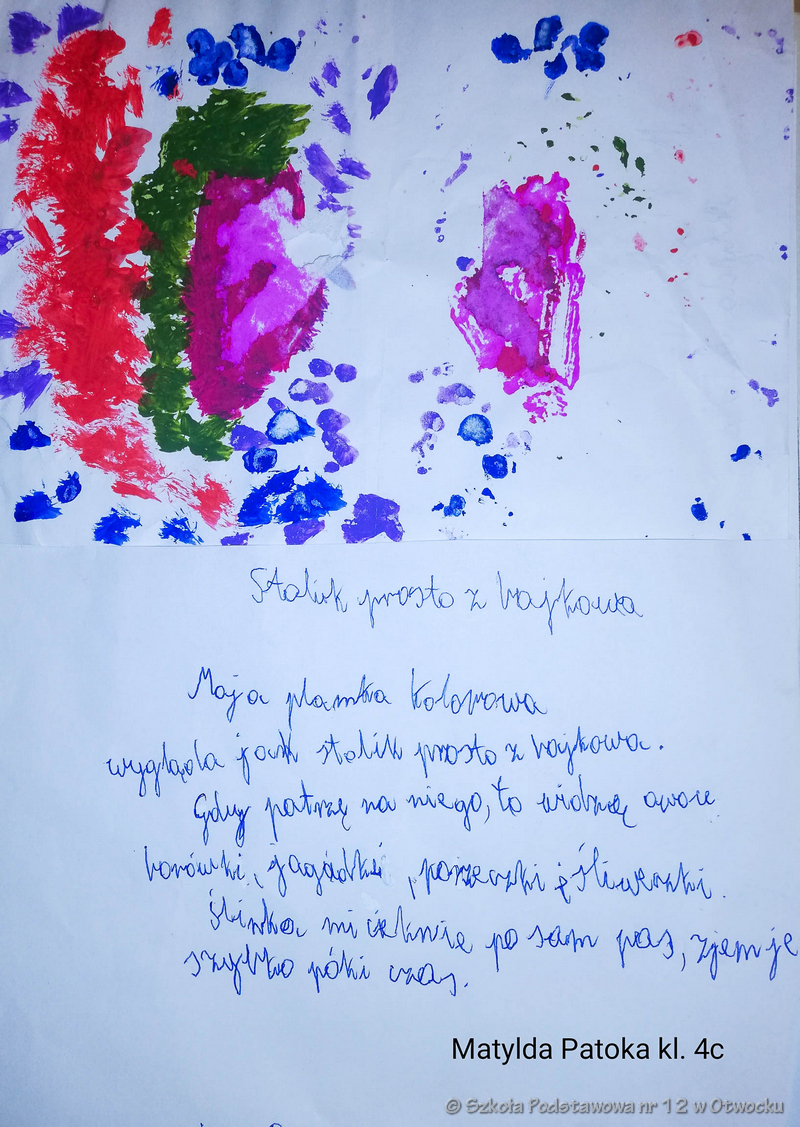 Stolik prosto z bajkowa
Moja plamka kolorowa
wygląda jak stolik prosto z bajkowa.
Gdy patrzę na niego, to widzę owoce
borówki, jagódki, porzeczki i śliweczki.
Ślinka mi cieknie po sam pas, zjem je
szybko póki czas.
Matylda Patoka kl. 4c
© Szkoła Podstawowa nr 12 w Otwocku